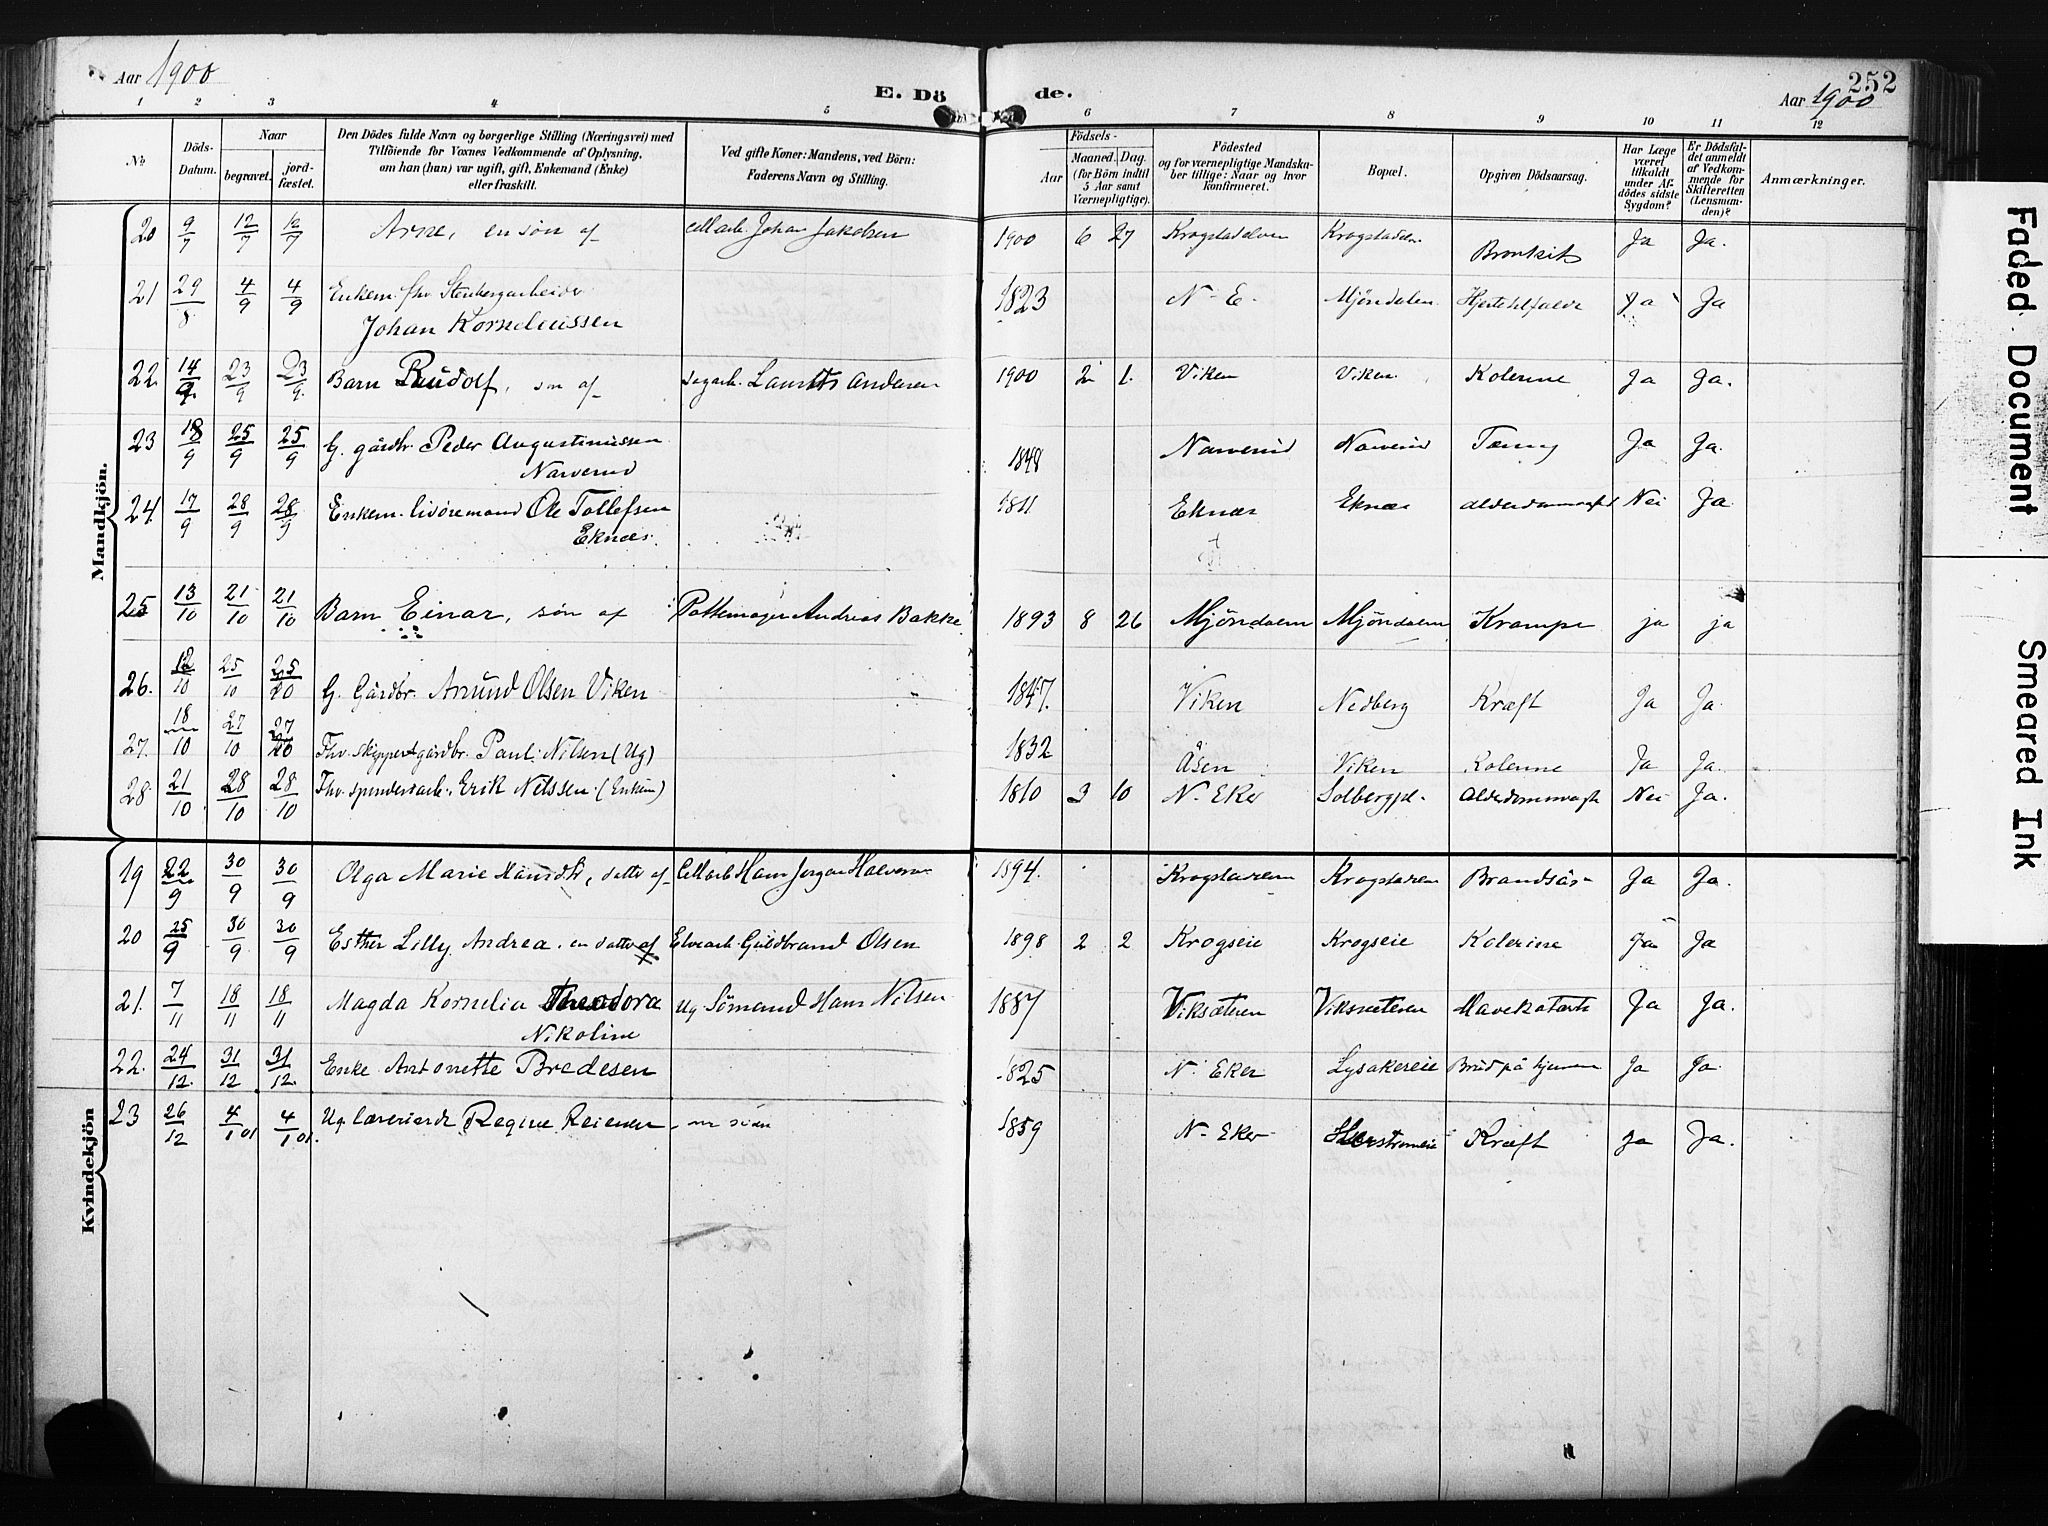 Aar 1900
E. Dö de.
252
Aar 1900
1 2 3 4 5 6 7 8 9 10 11 12
No
Döds-Datum.
Naar
begravet.
jord-fæstet.
Den Dödes fulde Navn og borgerlige Stilling (Næringsvei) med
Tilföiende for Voxnes Vedkommende af Oplysning,
om han (han) var ugift, gift, Enkemand (Enke)
eller fraskilt.
Ved gifte Koner: Mandens, ved Börn:
Faderens Navn og Stilling.
Födsels-
Aar
Maaned. Dag.
(for Börn indtil
5 Aar samt
Værnepligtige).
Födested
og for værnepligtige Mandska-
ber tillige: Naar og hvor
konfirmeret.
Bopæl.
Opgiven Dödsaarsag.
Har Læge
været
tilkaldt
under Af-
dödes sidste
Sygdom?
Er Dödsfal-
det anmeldt
af Vedkom-
mende for
Skifteretten
(Lensman-
den)?
Anmærkninger.
Mandkjön.
20 9/7 12/7 12/7 Arne, en søn af Cellarb. Johan Jakobsen 1900 6 27 Krogstadelven Bronkit Ja Ja.
21 29/8 4/9 4/9 Enkem. fhv. Stenbergarbeider
Johan Kornelieussen 1823 N-E. Mjöndalen Ja Ja
22. 14/9 23/9 23/9 Barn Rudolf, søn af Sagarb. Laurits Andersen 1900 2 1. Viken Viken Kolerine Ja Ja.
23 18/9 25/9 25/9 G. gårdbr. Peder Augustinussen
Narverud 1848 Narverud Narverud Tæring Ja Ja.
24. 17/9 28/9 28/9 Enkem. livöremand Ole Tollefsen
Eknæs. 1811 Eknæs Eknæs Nei Ja
25 13/10 21/10 21/10 Barn Einar, søn af Pottemager Andreas Bakke. 1893 8 26 Mjöndalen Mjöndalen Krampe ja ja
26. 12/10 25/10 25/10 G. Gårdbr. Amund Olsen Viken 1847. Viken Nedberg Kræft Ja Ja.
27. 18/10 27/10 27/10 Fhv. skipper & gårdbr. Paul Nilsen (Ug) 1832 Åsen Viken Kolerine Ja Ja.
28. 21/10 28/10 28/10 Fhv. spinderiarb. Erik Nilssen (Enkem) 1810 3 10 N. Eker Solbergpl. Alderdomssvagh. Nei Ja.
Kvindekjön
19 22/9 30/9 30/9 Olga Marie Hansdtr, datter af Cellarb Hans Jørgen Halvorsen 1894. Ja Ja.
20 25/9 30/9 30/9 Esther Lilly Andrea, en datter af Elvearb. Guldbrand Olsen 1898 2 2 Krogseie Krogseie Kolerine Ja Ja
21. 7/11 18/11 18/11 Magda Kornelia Theodora
Nikoline Ug Sömand Hans Nilsen 1887 Viksæteren Viksæteren Mavekatarh Ja Ja.
22. 24/12 31/12 31/12 Enke Antonette Bredesen 1825 N. Eker Lysakereie Ja Ja
23 26/12 4/1 01 4/1 01. Ug. lærerinde Regine Reiersen 1859 N. Eker Kræft Ja Ja.
Faded Document
Smeared Ink